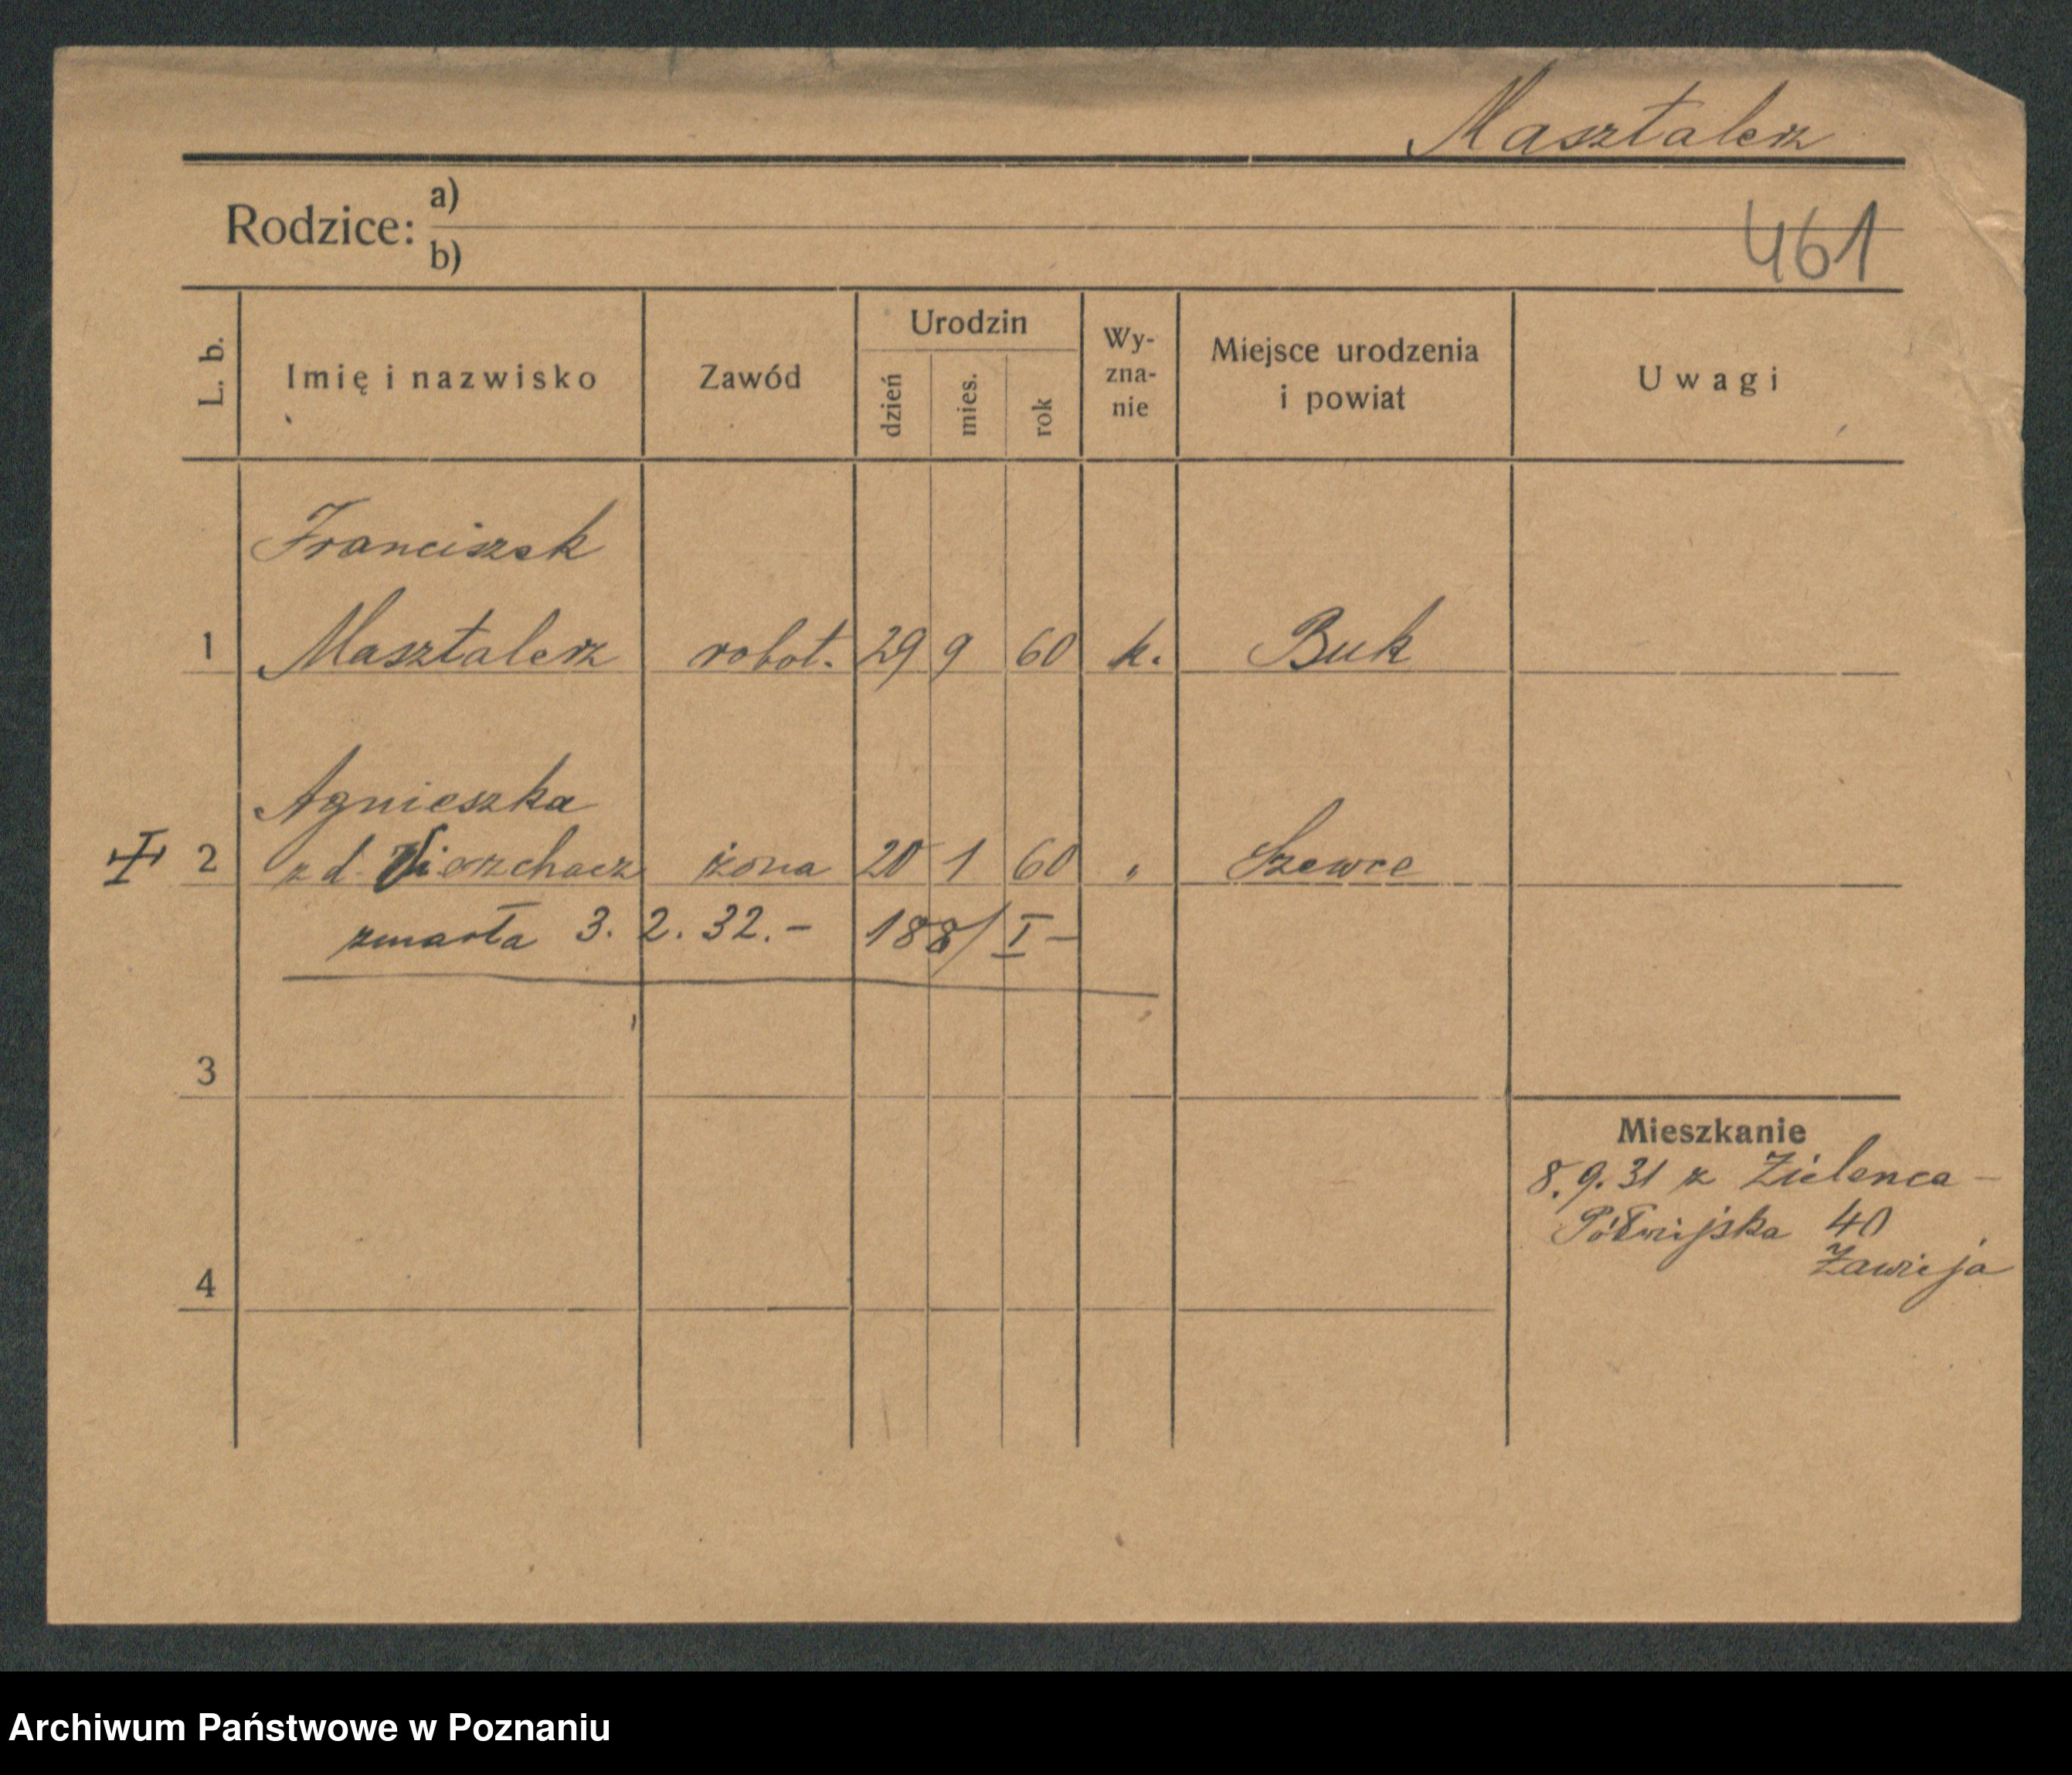 Masztalerz
Rodzice: a)
b)
461
L. b. Imię i nazwisko Zawód Urodzin dzień mies. rok Wy-zna-nie Miejsce urodzenia i powiat Uwagi
Franciszek
1 Masztalerz robot. 29 9 60 k. Buk
Agnieszka
2 z d. żona 20 1 60 " Szewce
zmarła 3. 2. 32. - 188/I -
3
Mieszkanie
8. 9. 31 z Zielenca -
Półwiejska 40
Zawieja
4
Archiwum Państwowe w Poznaniu